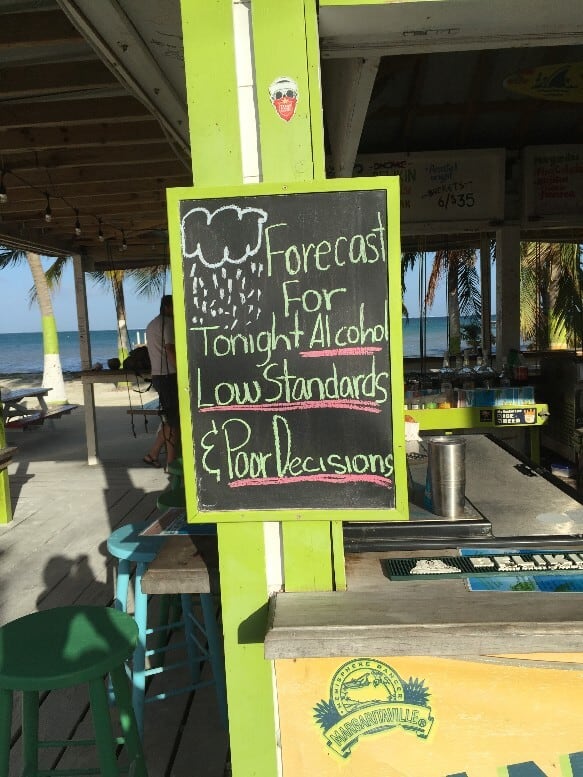 Forecast
For
Tonight Alcohol
Low Standards
& Poor Decisions
BUCKETS
6/$35
BELIKIN
HEMISPHERE DANCER
MARGARITAVILLE